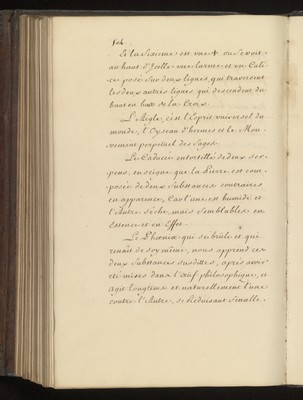 104.
Et la Sixieme est une + ou se voit
au haut d'Icelle une larme et un Cali-
ce posé sur deux lignes, qui traversent
les deux autres lignes qui descendent du
haut en bas de la Croix.
L'Aigle, c'est l'Esprit universel du
monde, l'Oyseau d'hermes et le Mou-
vement perpetuel des Sages.
Le Caducée entortillé de deux ser-
pens, enseigne que la Pierre est com-
posée de deux Substances contraires
en apparence, Car l'une est humide et
l'Autre Seche, mais Semblables en
Essence et en Effet.
Le Phoenix qui se brûle et qui
renait de soy même, nous apprend ces
deux Substances susdittes, après avoir
eté mises dans l'oeuf philosophique, et
agit longtems et naturellement l'une
contre l'Autre, se Reduisant finalle-